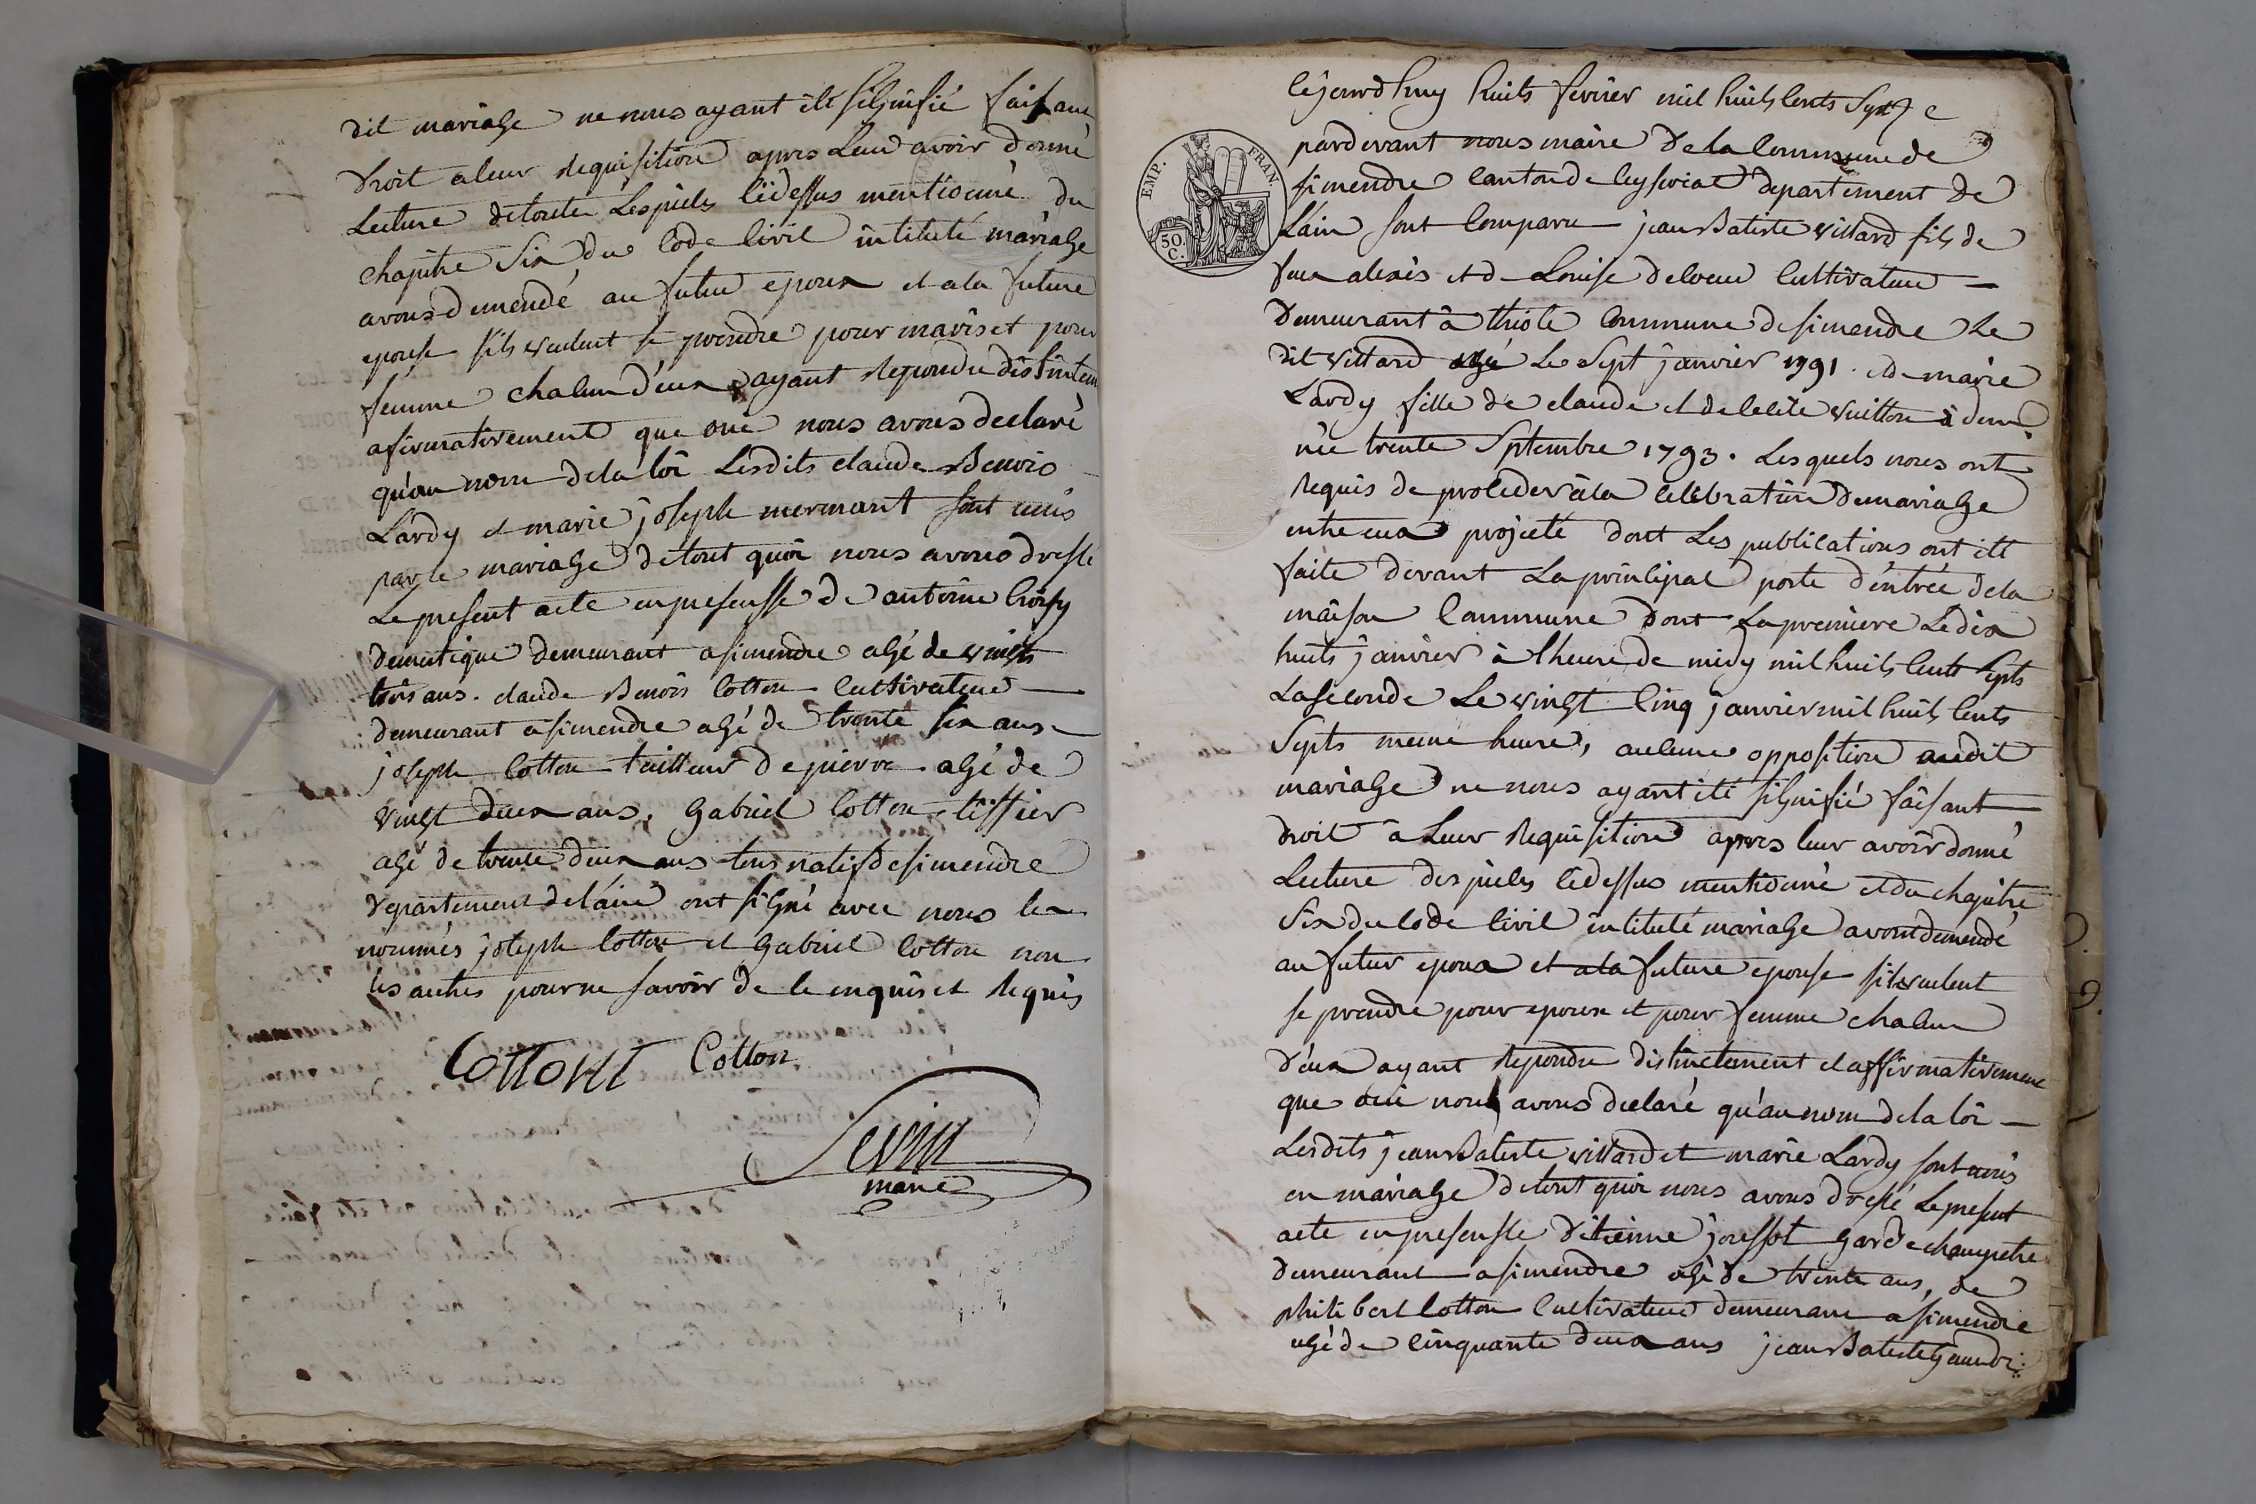 dit mariage ne nous ayant été signifié faisant
droit a leur requisition apres Leur avoir donné
Lecture de toute Les pieces cidessus mentionné du
chapitre Six du Code Civil intitulé mariage
avons demendé au futur epoux et a la future
epouse sils veulent se prendre pour maris et pour
femme chacun d'eux ayant repondu distinctem
afirmativement que oui nous avons declaré
qu'au nom de la loi Lesdits claude Benois
Lardy et marie joseph mermant sont unis
par le mariage de tout quoi nous avons dressé
Le present acte en presensse de antoine
domestique demeurant a simendre agé de vingt
trois ans. claude Benois Cotton Cultivateur
demeurant a simendre agé de trente six ans
joseph Cotton tailleur de pierre agé de
vingt deux ans, Gabriel Cotton tissier
agé de trente deux ans tous natif de simendre
departement de l'ain ont signé avec nous les
nommés joseph Cotton et Gabriel Cotton non
les autres pour ne savoir de le enquis et requis
Cottont Cotton
Sevin
maire
Cejourd'huy huits fevrier mil huits Cents Sept
pardevant nous maire De la Commune de
simendre Canton de Ceyseriat departement de
L'ain sont Comparu jean Batiste villard fils de
feux alexis et de Louise Cultivateur
Demeurant à thiole Commune de simendre Le
dit villard agé Le Sept janvier 1791. et de marie
Lardy fille de claude et de Cecile vuitton
née trente Septembre 1793. Lesquels nous ont
Requis de proceder à la Celebration de mariage
entre eux projeté dont Les publications ont été
faite devant La principal porte d'entrée de la
maison Commune Dont La premiere Le dix
huits janvier à l'heure de midy mil huits Cents Septs
La seconde Le vingt Cinq janvier mil huits Cents
Septs meme heure, aucune opposition audit
mariage ne nous ayant été signifié faisant
droit à Leur Requisition apres leur avoir donné
Lecture des pieces cidessus mentionné et du chapitre
Six du Code Civil intitulé mariage avons demendé
au futur epoux et a la future epouse sils veulent
se prendre pour epoux et pour femme chacun
d'eux ayant repondu distinctement et affirmativement
que oui nous avons declaré qu'au nom de la loi
Lesdits jean Batiste villard et marie Lardy sont unis
en mariage de tout quoi nous avons dressé Le present
acte en presensse d'etienne gardechampetre
demeurant a simendre agé de trente ans, de
philibert Cotton Cultivateur demeurant a simendre
agé de Cinquante deux ans jean Batiste
EMP. FRAN.
50. C.